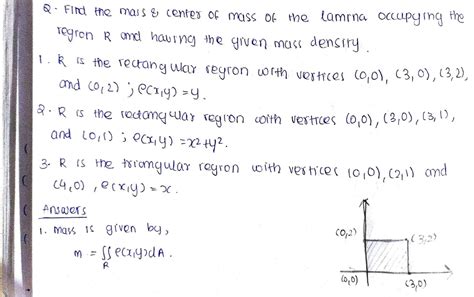 Q. Find the mass & center of mass of the lamina occupying the
region R and having the given mass density.
1. R is the rectangular region with vertices (0,0), (3,0), (3,2),
and (0,2) ; ρ(x,y) = y.
2. R is the rectangular region with vertices (0,0), (3,0), (3,1),
and (0,1) ; ρ(x,y) = x²+y².
3. R is the triangular region with vertices (0,0), (2,1) and
(4,0), ρ(x,y) = x.
Answers
1. mass is given by,
m = ∬ ρ(x,y)dA.
R
(0,2)
(3,2)
(0,0)
(3,0)